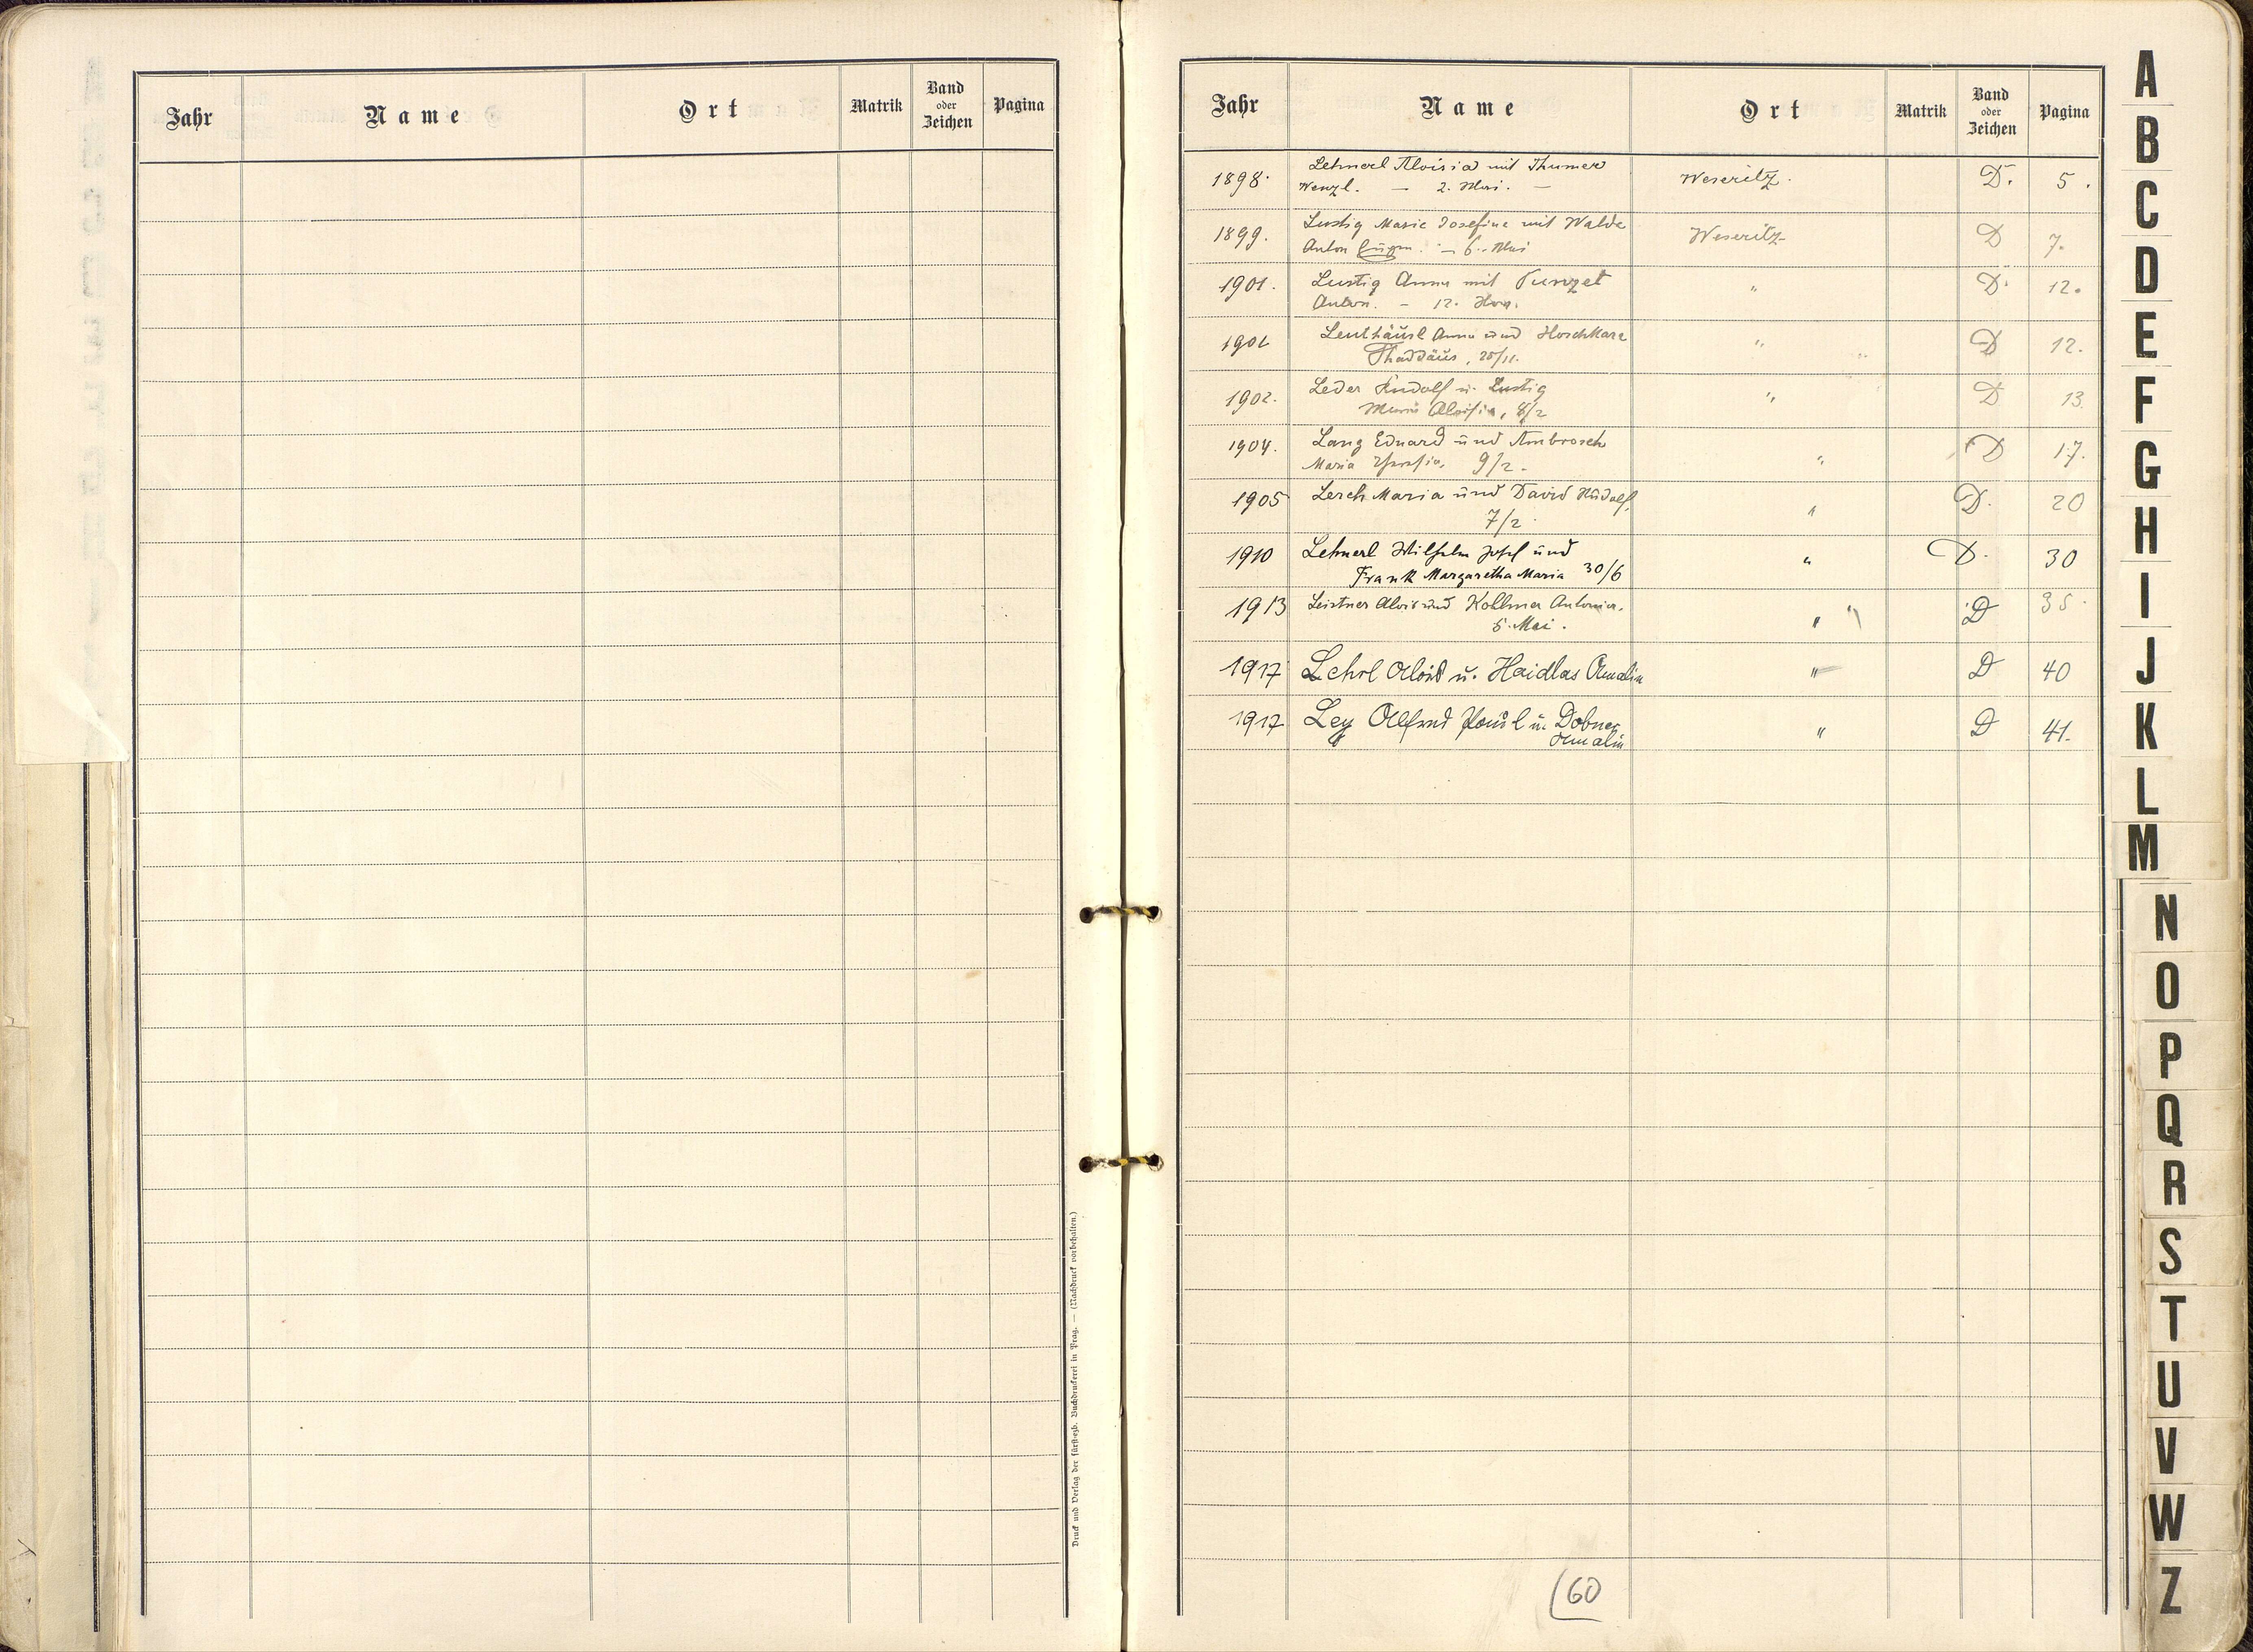 Jahr Name Ort Matrik Band oder Zeichen Pagina
Druck und Verlag der fürst-ezb. Buchdruckerei in Prag. — (Nachdruck vorbehalten.)
Jahr Name Ort Matrik Band oder Zeichen Pagina
1898. Lehnerl Aloisia mit Thumer Weseritz. D. 5.
Wenzl. — 2. Mai. —
1899. Lustig Marie Josefine mit Walda Weseritz D 7.
Anton Eugen. — 6. Mai
1901. Lustig Anna mit " D. 12.
Anton. — 12. Nov.
1901 Leuthäusl Anna und Hoschkara " " D 12.
Thaddäus, 25/11.
1902. Leder Rudolf u. Lustig " D 13.
Maria Aloisia, 8/2
1904. Lang Eduard und Ambrosch " D 17.
Maria 9/2.
1905 Lerch Maria und David Rudolf, " D. 20
7/2.
1910 Lehnerl Wilhelm Josef und " D. 30
Frank Margaretha Maria 30/6
1913 Leistner Alois und Kollmer Antonia. " D 35.
5. Mai.
1917 Lehrl Alois u. Haidlas Amalia " D 40
1917 Ley Alfred Paul u. Dobner " D 41.
Amalia
60
A
B
C
D
E
F
G
H
I
J
K
L
M
N
O
P
Q
R
S
T
U
V
W
Z